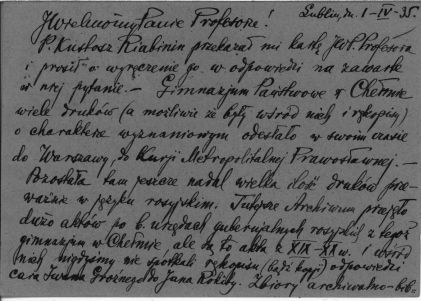 Lublin, dn. 1-IV-35.
JWielmożny Panie Profesorze!
P. Kustosz Riabinin przekazał mi kartkę JWP. Profesora
i prosił o wyręczenie go w odpowiedzi na zawarte
w niej pytanie. — Gimnazjum Państwowe w Chełmie
wiele druków (a możliwie że były wśród nich i rękopisy)
o charakterze wyznaniowym odesłało w swoim czasie
do Warszawy, do Kurji Metropolitalnej Prawosławnej. —
Pozostała tam jeszcze nadal wielka ilość druków prze-
ważnie w języku rosyjskim. Tutejsze Archiwum przejęło
dużo aktów po b. urzędach gubernjalnych rosyjskich z tegoż
gimnazjum w Chełmie, ale są to akta z XIX-XX w. i wśród
nich nigdzieśmy nie spotkali rękopisu (bądź kopji) odpowiedzi
cara Iwana Groźnego do Jana Rokity. Zbiory archiwalno-bib-